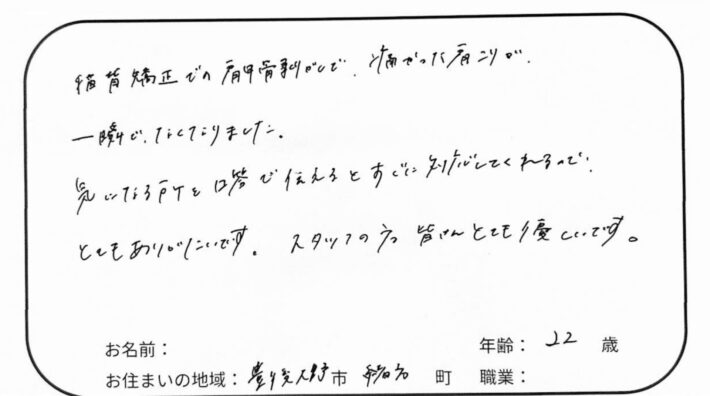 猫背矯正での肩甲骨剥がしで、痛かった肩こりが、
一瞬で、なくなりました。
気になる所を口答で伝えるとすぐに対応してくれるので、
とてもありがたいです。 スタッフの方 皆さんとても優しいです。
お名前： 年齢： 22 歳
お住まいの地域： 豊後大野市 町 職業：